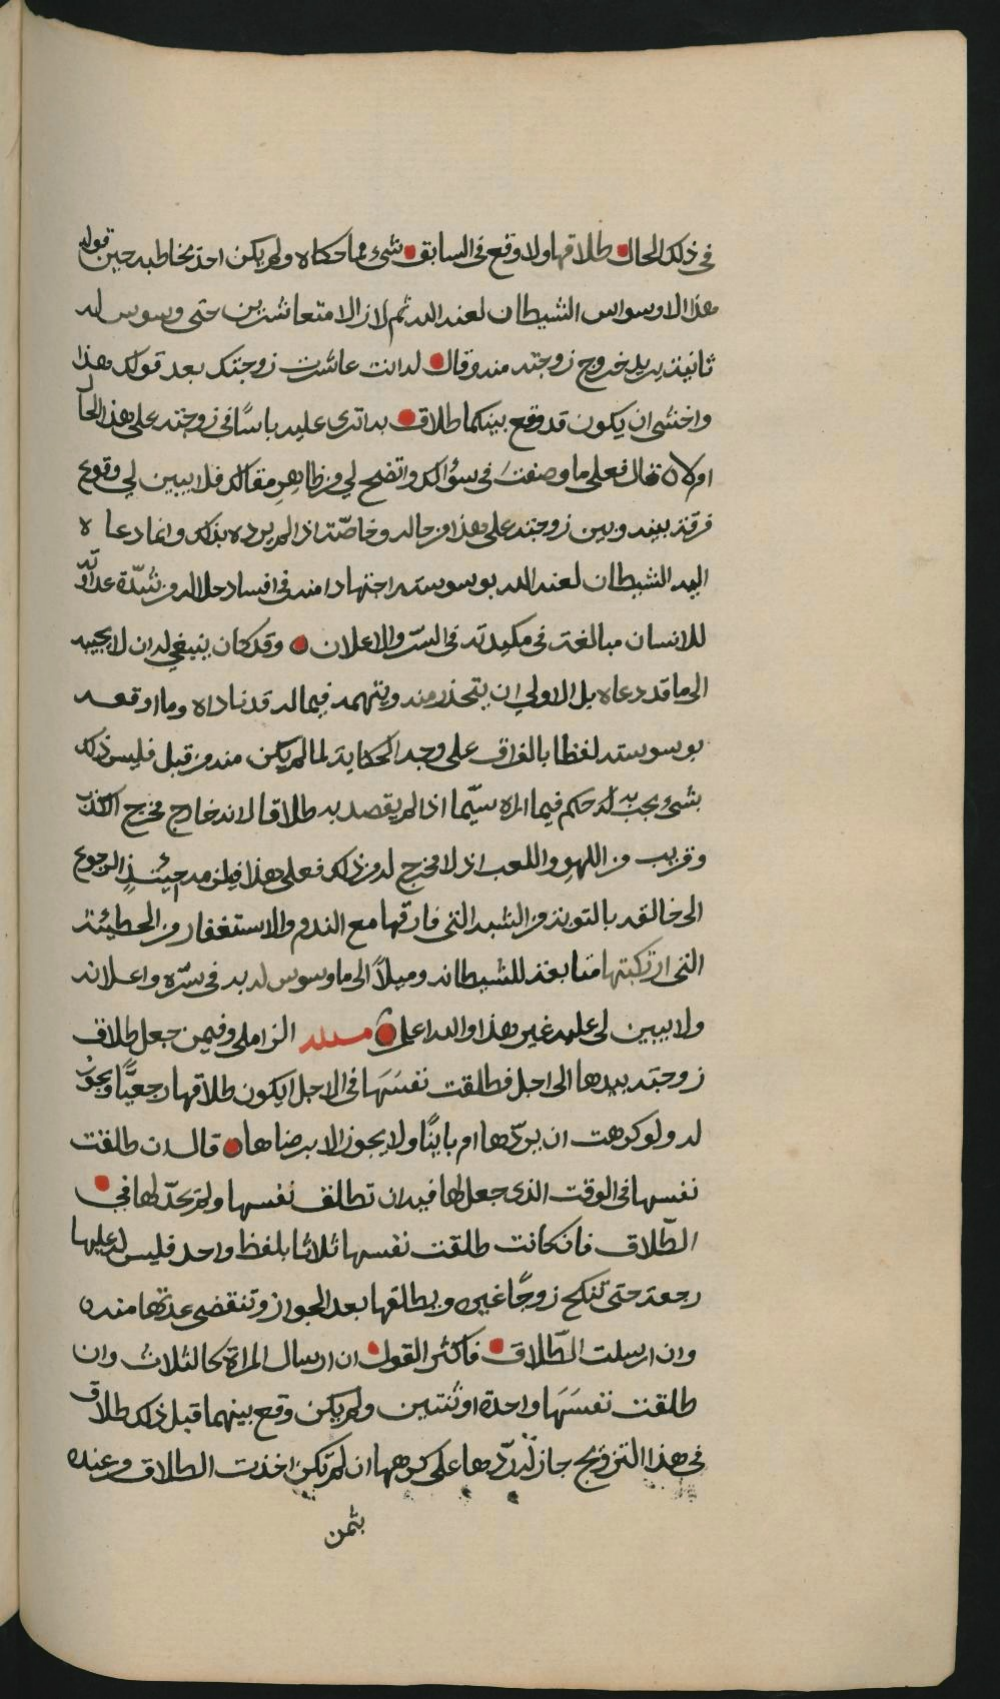 في ذلك الحال طلاقها ولا وقع في السابق شيء مما حكاه ولم يكن احد مخاطبه حين قوله
هذا الا وسواس الشيطان لعنه الله ثم لا زالا متعاشرين حتى وسوس له
ثانية يريد خروج زوجته منه وقال له انت عاشرت زوجتك بعد قولك هذا
واخشى ان يكون قد وقع بينكما طلاق به اترى عليه باسًا في زوجته على هذا الحال
ام لا قال فعلى ما وصفت في سؤالك واتضح لي من ظاهر مقالك فلا يبين لي وقوع
فرقة بينه وبين زوجته على هذا من حاله وخاصّة اذا لم يرده بذلك وانما دعاه
اليه الشيطان لعنه الله بوسوسته اجتهادا منه في افساد حلاله من شدّة عداوته
للانسان مبالغة في مكيدته في السرّ والاعلان وقد كان ينبغي له ان لا يجيبه
الى ما قد دعاه بل الاولى ان يتحذر منه ويتهمه فيما له قد ناداه وما اوقعه
بوسوسته لفظا بالفراق على وجه الحكاية لما لم يكن منه من قبل فليس ذلك
بشيء يجب به له حكم فيما اراه سيّما اذا لم يقصد به طلاقا لانه خارج مخرج الكذب
وقريب من اللهو واللعب اذ لا مخرج له من ذلك فعلى هذا فيلزمه حينئذٍ الرجوع
الى خالقه بالتوبة من الشبه التي فارقها مع الندم والاستغفار من الخطيئة
التي ارتكبتها متابعة للشيطانه وميلًا الى ما وسوس له به في سرّه واعلانه
ولا يبين لي عليه غير هذا والله اعلم مسئلة الزاملي وفيمن جعل طلاق
زوجته بيدها الى اجل فطلقت نفسَهَا في الاجل ايكون طلاقها رجعيًّا ويجوز
له ولو كرهت ان يردّها ام باينًا ولا يجوز الا برضاها قال ان طلقت
نفسها في الوقت الذي جعل لها فيه ان تطلق نفسها ولم يحدّ لها في
الطّلاق فان كانت طلقت نفسها ثلاثا بلفظ واحد فليس له عليها
رجعة حتى تنكح زوجًا غيره ويطلقها بعد الجواز وتنقضي عدتها منه
وان ارسلت الطّلاق فاكثر القول ان ارسال المراة كالثلاث وان
طلقت نفسَهَا واحدة او ثنتين ولم يكن وقع بينهما قبل ذلك طلاق
في هذا التزويج جاز له ردّها على كرهها ان لم تكن اخذت الطلاق من عنده
بثمن